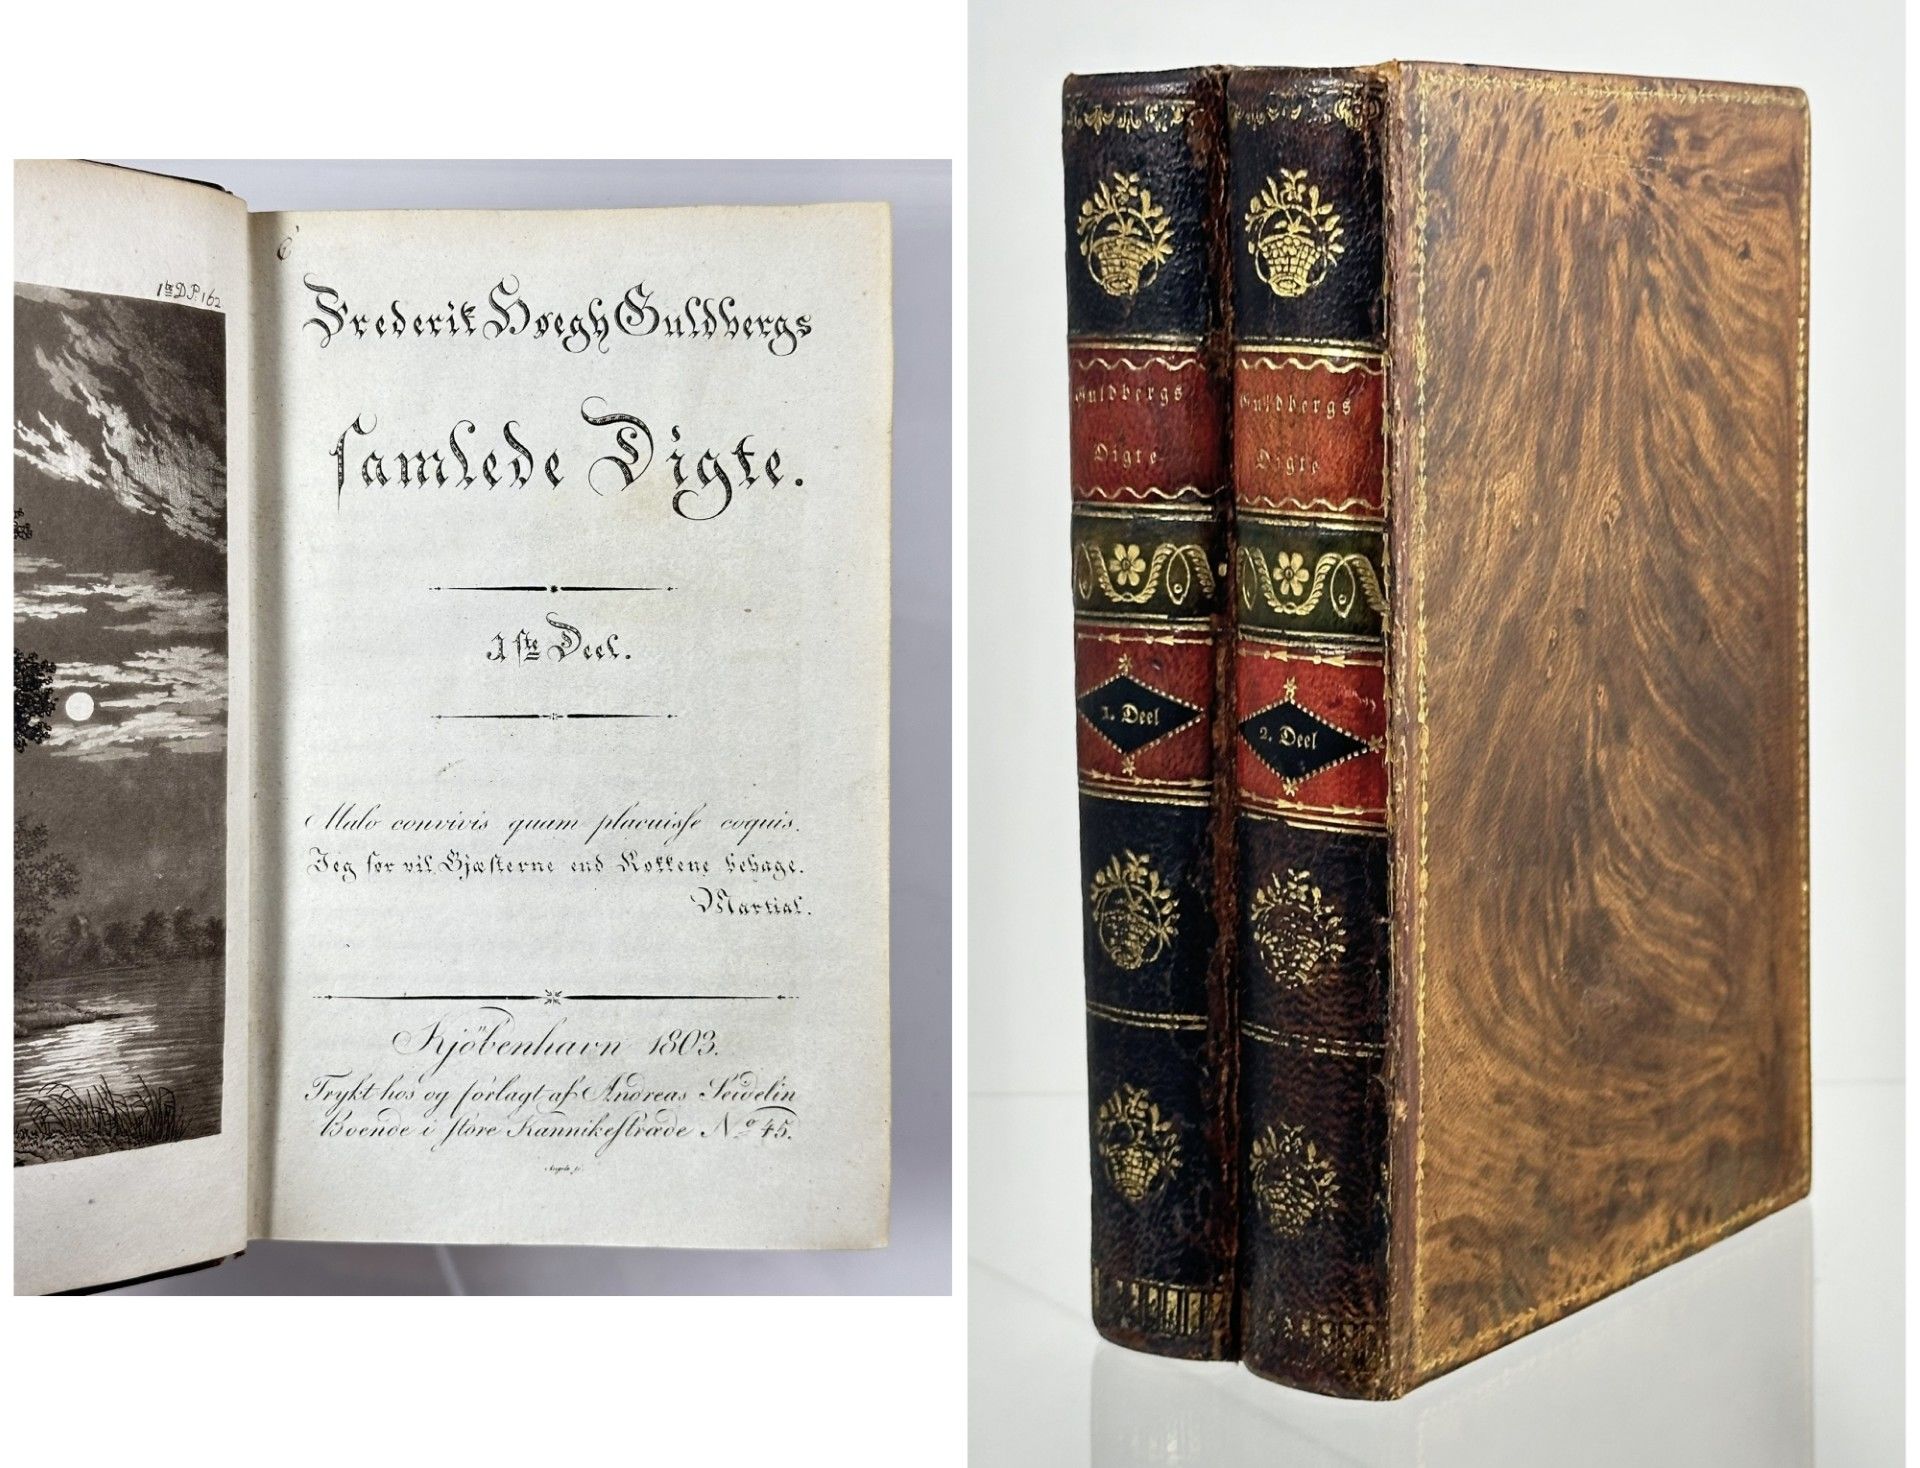 1ste D P. 162
Frederik Høegh Guldbergs
samlede Digte.
1ste Deel.
Malo convivis quam placuisse coquis.
Jeg før vil Gjæsterne end Kokkene behage.
Martial.
Kjöbenhavn 1803.
Trykt hos og forlagt af Andreas Seidelin
Boende i store Kannikestræde No 45.
Guldbergs
Digte
1. Deel
Guldbergs
Digte
2. Deel